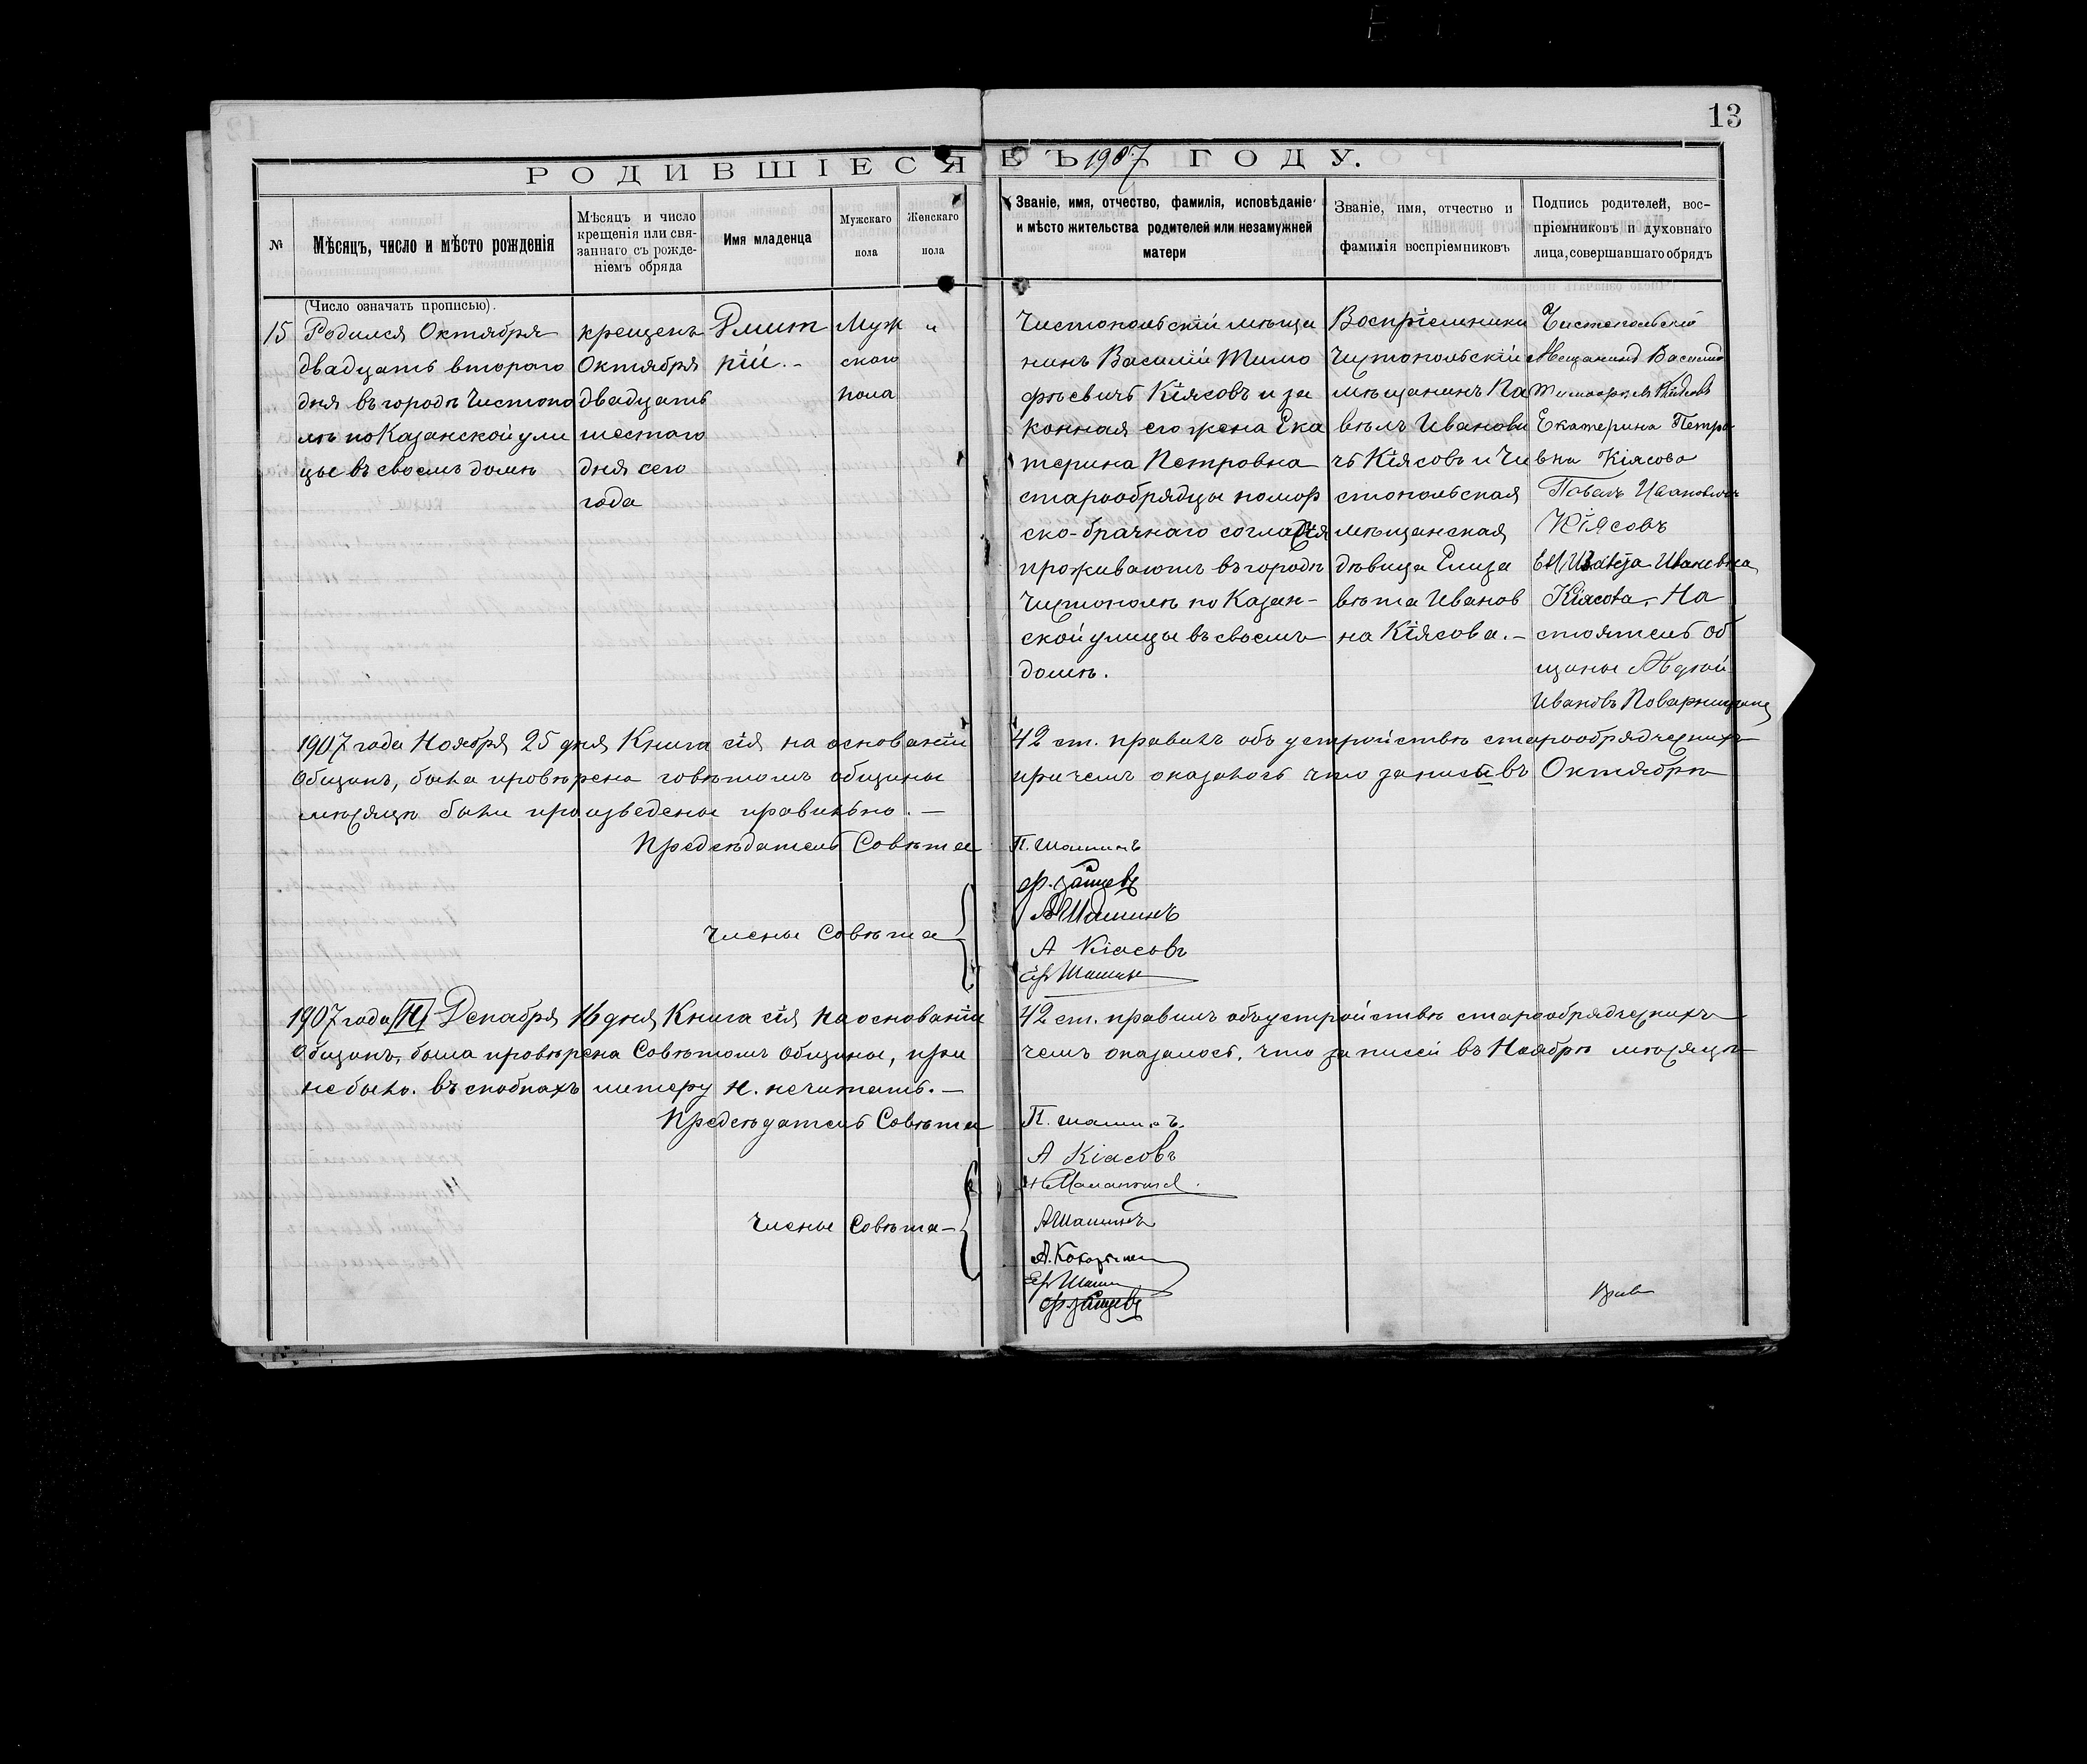 13
РОДИВШІЕСЯ ВЪ 1907 ГОДУ.
№
Мѣсяцъ, число и мѣсто рожденія
Мѣсяцъ и число
крещенія или свя-
заннаго съ рожде-
ніемъ обряда
Имя младенца
Мужскаго
пола
Женскаго
пола
Званіе, имя, отчество, фамилія, исповѣданіе
и мѣсто жительства родителей или незамужней
матери
Званіе, имя, отчество и
фамилія воспріемниковъ
Подпись родителей, вос-
пріемниковъ и духовнаго
лица, совершавшаго обрядъ
(Число означать прописью).
15
Родился Октября
двадцать второго
дня въ городѣ Чистопо
лѣ по Казанской ули
цѣ въ своемъ домѣ
крещенъ
Октября
двадцать
шестого
дня сего
года
Дмит
рій.-
Муж
ского
пола
"
Чистопольскій мѣща
нинъ Василій Тимо
фѣевичъ Кіясовъ и за
конная его жена Ека
терина Петровна
старообрядцы помор
ско-брачнаго согласія
проживаютъ въ городѣ
Чистополѣ по Казан-
ской улицы въ своемъ
домѣ.
Воспріемники
Чистопольскій
мѣщанинъ Па
вѣлъ Иванови
чъ Кіясовъ и Чи
стопольская
мѣщанская
дѣвица Елиза
вѣта Иванов
на Кіясова.-
Чистопольскій
Мещанинъ Василій
Екатерина Петро
вна Кіясова
Павелъ Ивановичъ
Кіясовъ
Ивановна
Кіясова. На
стоятель об
щины Авдѣй
Ивановъ Поварницынъ
1907 года Ноября 25 дня Книга сія на основаніи 42 ст. правилъ объ устройствѣ старообрядческихъ
Общинъ, была провѣрена совѣтомъ общины причемъ оказалось что записи въ Октябрѣ
мѣсяцѣ были произведены правильно.-
Предсѣдатель Совѣта П. Шашинъ
Члены Совѣта
Ф. Зайцевъ
А Шашинъ
А Кіасовъ
Гр Шашин
1907 года (Н) Декабря 16 дня Книга сія на основаніи 42 ст. правилъ объ устройствѣ старообрядческихъ
Общинъ, была провѣрена Совѣтомъ Общины, при чемъ оказалось, что записей въ Ноябрѣ мѣсяцѣ
не было. въ скобкахъ литеру н. не читать.-
Предсѣдатель Совѣта П. Шашинъ.
А Кіасовъ
Члены Совѣта-
А Шашинъ
Гр Шаши
Ф. Зайцевъ